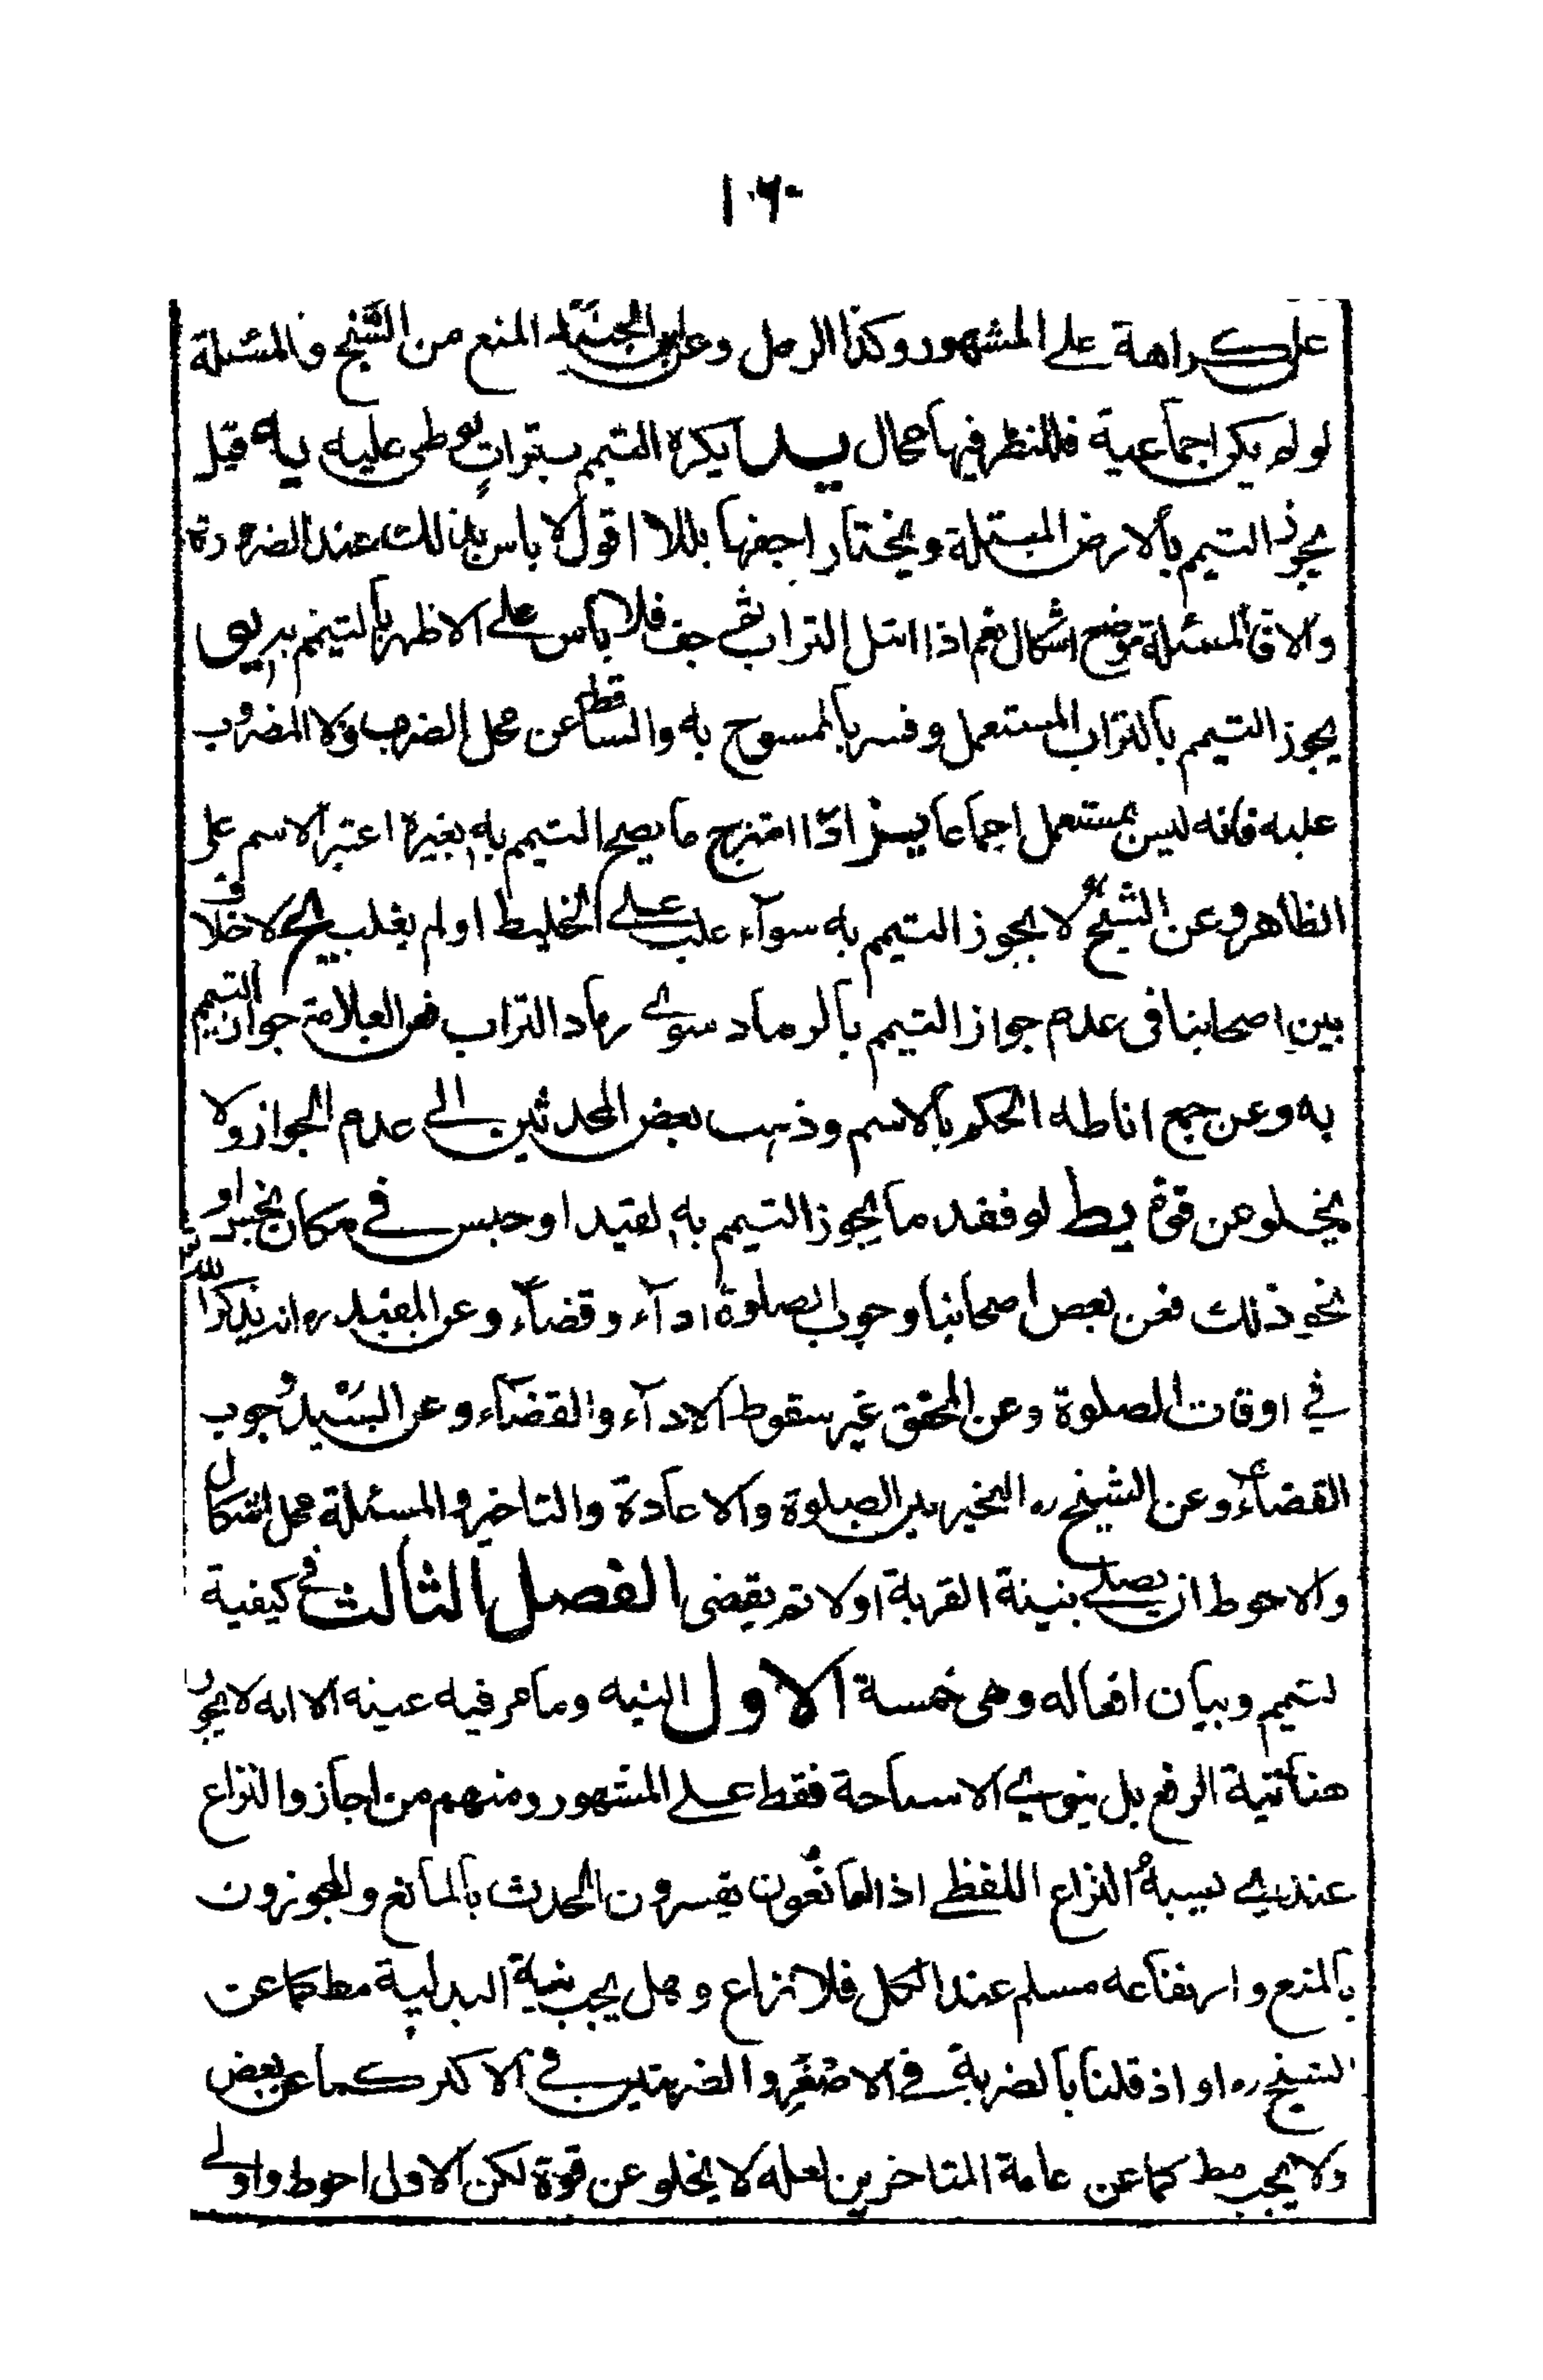 ١٠٦٠
على كراهة على المشهور وكذا الرمل وعن ابن الجنيد المنع من السّبخ والمسئلة
لو لم يكن اجماعية فللنظر فيها مجال يد يكره التيمم بتراب يوطى عليه يه قيل
يجوز التيمم بالارض المبتلة ويختار اجفها بللا اقول لا باس بذلك عند الضرورة
والا فالمسئلة موضع اشكال نعم اذا ابتل التراب ثم جف فلا باس على الاظهر بالتيمم به يو
يجوز التيمم بالتراب المستعمل وفسر بالممسوح به والساقط عن محل الضرب ولا المضروب
عليه فانه ليس بمستعمل اجماعا يز اذا امتزج ما يصح التيمم به بغيره اعتبر الاسم على
الظاهر وعن الشيخ لا يجوز التيمم به سوآء غلب على الخليط او لم يغلب يح لا خلاف
بين اصحابنا فى عدم جواز التيمم بالرماد سوى رماد التراب فعن العلامة جواز التيمم
به وعن جمع اناطه الحكم بالاسم وذهب بعض المحدثين الى عدم الجواز ولا
يخلو عن قوة يط لو فقد ما يجوز التيمم به لقيد او حبس في مكان نجس او
نحو ذلك فعن بعص اصحابنا وجوب الصلوة ادآء وقضآء وعن المفيد ره انه يذكر الله
في اوقات الصلوة وعن المحقق غير سقوط الادآء والقضآء وعن السيد وجوب
القضآء وعن الشيخ ره التخير بين الصلوة والاعادة والتاخير والمسئلة محل اشكال
والاحوط ان يصلى بنية القربة اولا ثم يقضى الفصل الثالث في كيفية
لتيمم وبيان افعاله وهى خمسة الاول النيه وما مر فيه عينه الا انه لا يجوز
هنا نية الرفع بل ينوي الاستباحة فقط على المشهور ومنهم من اجاز والنزاع
عندي يشبه النزاع اللفظى اذ المانعون يفسرون الحدث بالمانع والمجوزون
بالمنع وارتفاعه مسلم عند الكل فلا نزاع وهل يجب نية البدلية مط كما عن
الشيخ ره او اذ قلنا بالضربة في الاصغر والضربتين في الاكبر كما عن بعض
ولا يجب مط كما عن عامة المتاخرين لعله لا يخلو عن قوة لكن الاول احوط واولى